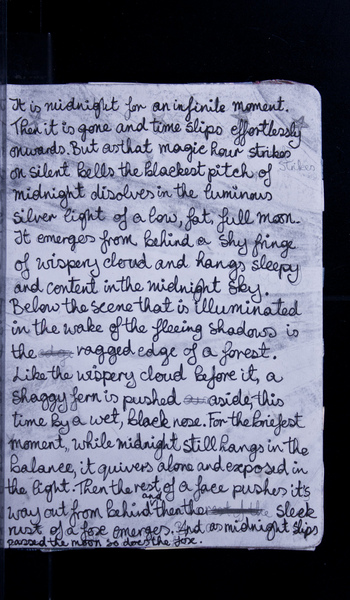 It is midnight for an infinite moment.
Then it is gone and time slips effortlessly
onwards. But as that magic hour strikes
strikes
on silent bells the blackest pitch of
midnight disolves in the luminous
silver light of a low, fat, full moon.
It emerges from behind a shy fringe
of wispery cloud and hangs sleepy
and content in the midnight sky.
Below the scene that is illuminated
in the wake of the fleeing shadows is
the ragged edge of a forest.
Like the wispery cloud before it, a
shaggy fern is pushed aside, this
time by a wet, black nose. For the briefest
moment, while midnight still hangs in the
balance, it quivers alone and exposed in
the light. Then the rest of a face pushes it's
way out from behind and then the sleek
rust of a foxe emerges. And as midnight slips
passed the moon so does the foxe.